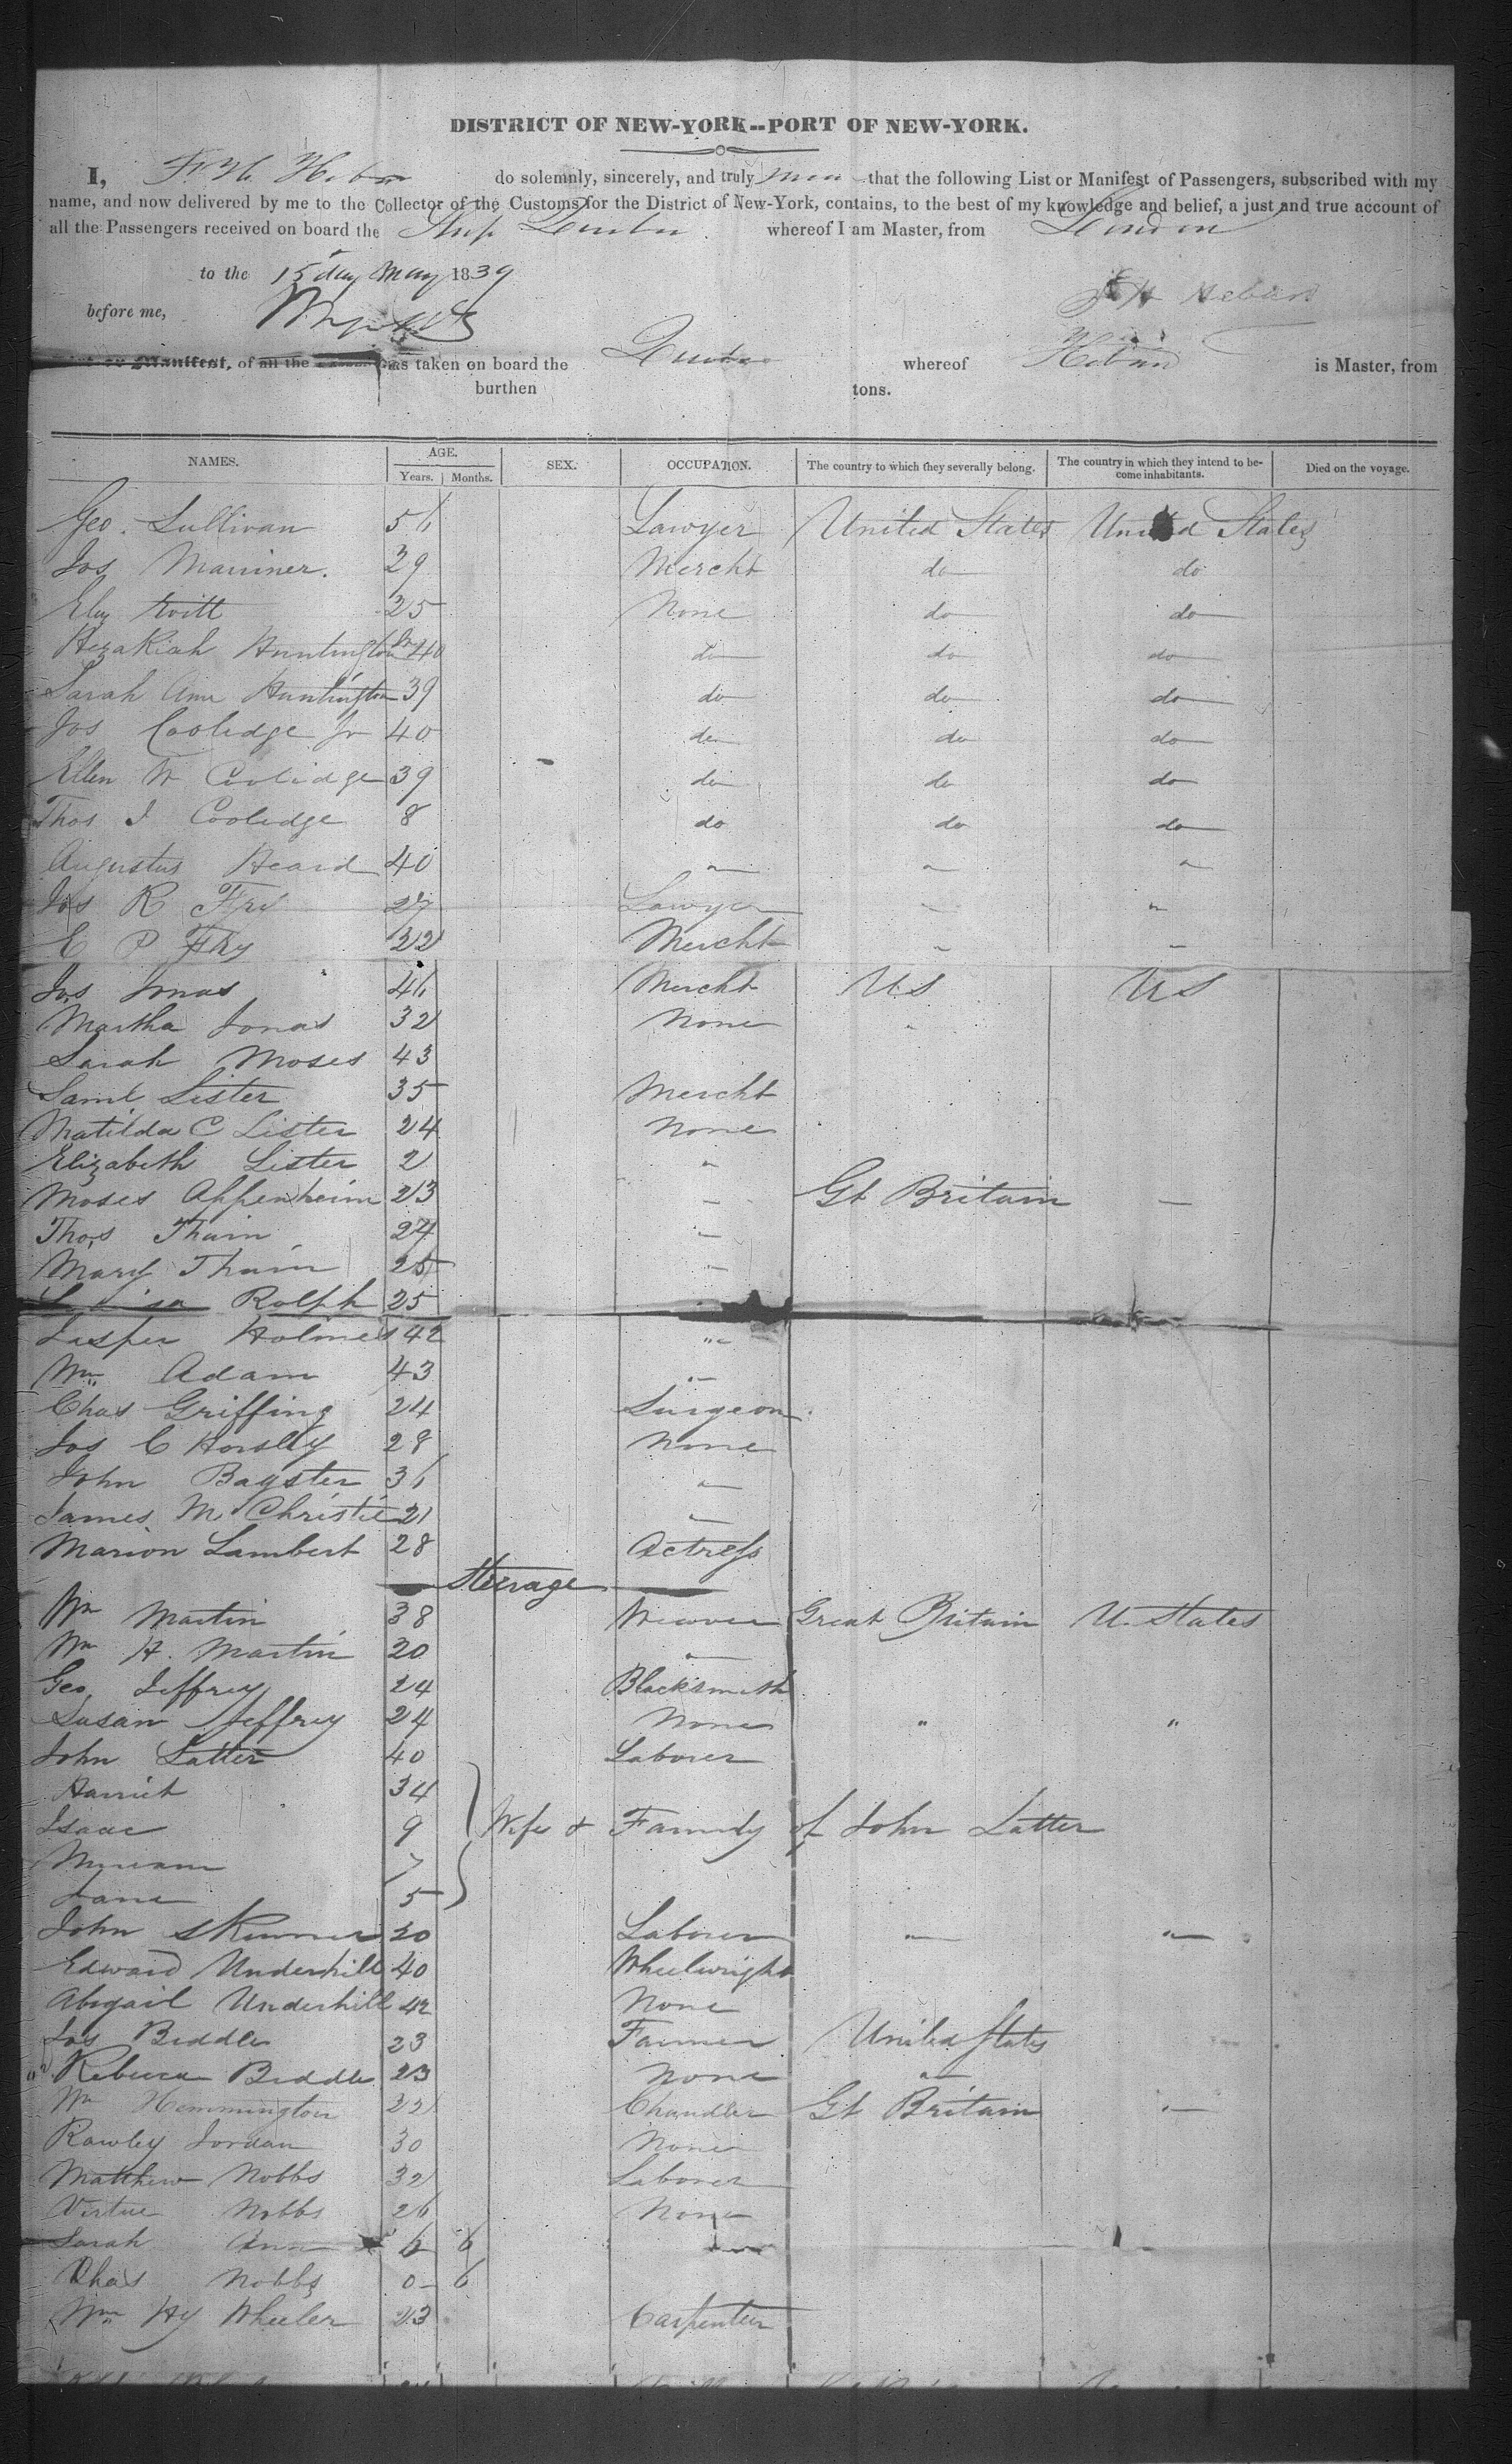 DISTRICT OF NEW-YORK--PORT OF NEW-YORK.
I, do solemnly, sincerely, and truly that the following List or Manifest of Passengers, subscribed with my
name, and now delivered by me to the Collector of the Customs for the District of New-York, contains, to the best of my knowledge and belief, a just and true account of
all the Passengers received on board the Ship whereof I am Master, from London
to the 15 day May 1839
before me,
Manifest, of all the taken on board the whereof is Master, from
burthen tons.
NAMES. AGE. SEX. OCCUPATION. The country to which they severally belong. The country in which they intend to become inhabitants. Died on the voyage.
Years. Months.
Geo. Sullivan 56 Lawyer United States United States
Jos Marriner. 29 Mercht do do
25 None do do
Hezakiah Huntington 40 do do do
Sarah Ann Huntington 39 do do do
Jos Coolidge Jr 40 do do do
Ellen W Coolidge 39 do do do
Thos J Coolidge 8 do do do
Augustus Heard 40 " " "
Jos R Fry 27 Lawyer " "
E P Fry 22 Mercht " "
Jos Jonas 46 Mercht US US
Martha Jonas 32 None
Sarah Moses 43
Saml Lister 35 Mercht
Matilda C Lister 24 None
Elizabeth Lister 2 "
Moses Appenheim 23 " Gt Britain "
Thos Thain 24 "
Mary Thain 25 "
Rolph 25
Holmes 42 "
Wm Adam 43 "
Chas Griffing 24 Surgeon
Jos C Horsley 28 None
John Bagster 36 "
James M Christie 21 "
Marion Lambert 28 Actress
Steerage
Wm Martin 38 Weaver Great Britain U. States
Wm H. Martin 20 "
Geo Jeffrey 24 Blacksmith
Susan Jeffrey 24 None " "
John Latter 40 Laborer
Harriet 34
Isaac 9 Wife & Family of John Latter
Miriam 7
Jane 5
John Skinner 20 Laborer " "
Edward Underhill 40 Wheelwright
Abigail Underhill 42 None
Jos Biddle 23 Farmer United States
Rebecca Biddle 23 None "
Wm Hemmington 22 Chandler Gt Britain "
Rawley Jordan 30 None
Matthew Nobbs 32 Laborer
Virtue Nobbs 26 None
Sarah Ann 6 6
Chas Nobbs 0 6
Wm Hy Wheeler 23 Carpenter